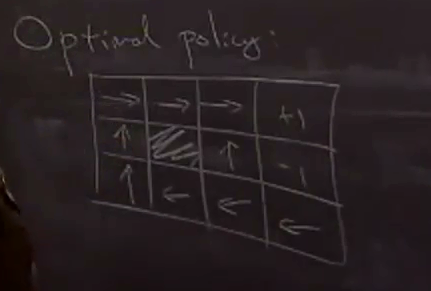 Optimal policy:
→ → → +1
↑ ↑ -1
↑ ← ← ←